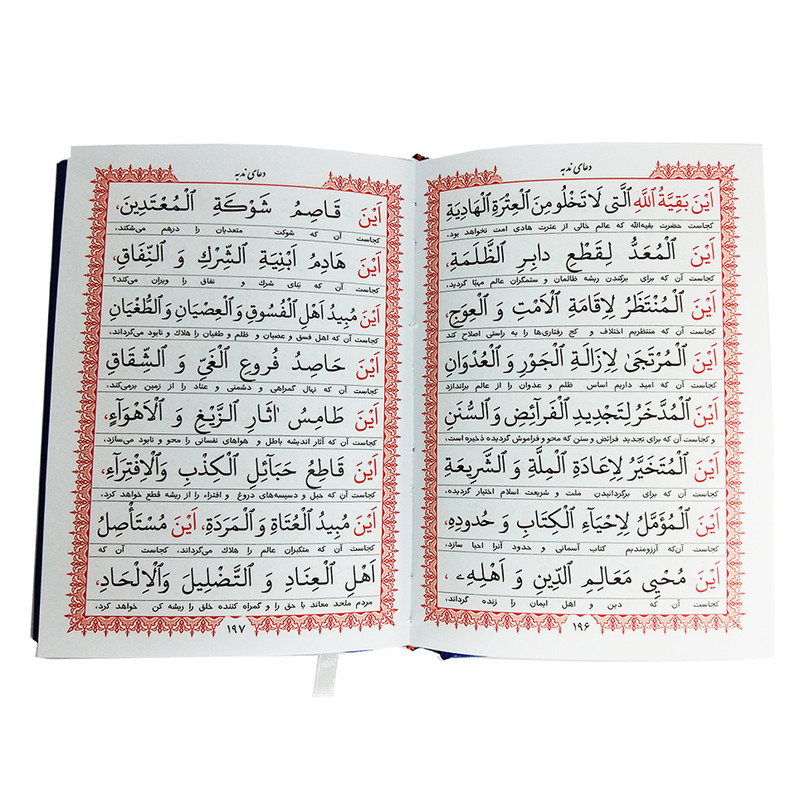 دعای ندبه
اَیْنَ بَقِیَّةُ اللّٰهِ الَّتی لَا تَخْلُو مِنَ الْعِتْرَةِ الْهَادِیَةِ
کجاست حضرت بقیه‌الله که عالم خالی از عترت هادی امت نخواهد بود،
اَیْنَ الْمُعَدُّ لِقَطْعِ دابِرِ الظَّلَمَةِ،
کجاست آن که برای برکندن ریشه ظالمان و ستمگران عالم مهیّا گردید،
اَیْنَ الْمُنْتَظَرُ لِاِقَامَةِ الْاَمْتِ وَ الْعِوَجِ،
کجاست آن که منتظریم اختلاف و کج رفتاری‌ها را به راستی اصلاح کند
اَیْنَ الْمُرْتَجیٰ لِاِزَالَةِ الْجَوْرِ وَ الْعُدْوَانِ
کجاست آن که امید داریم اساس ظلم و عدوان را از عالم براندازد
اَیْنَ الْمُدَّخَرُ لِتَجْدِیدِ الْفَرَآئِضِ وَ السُّنَنِ
و کجاست آن که برای تجدید فرائض و سنن که محو و فراموش گردیده ذخیره است،
اَیْنَ الْمُتَخَیَّرُ لِاِعَادَةِ الْمِلَّةِ وَ الشَّرِیعَةِ
کجاست آن که برای برگردانیدن ملت و شریعت اسلام اختیار گردیده،
اَیْنَ الْمُؤَمَّلُ لِاِحْیَاءِ الْکِتَابِ وَ حُدُودِهِ،
کجاست آن‌که آرزومندیم کتاب آسمانی و حدود آنرا احیا سازد،
اَیْنَ مُحْیِی مَعَالِمِ الدِّینِ وَ اَهْلِهِ،
کجاست آن که دین و اهل ایمان را زنده گرداند،
۱۹۶
دعای ندبه
اَیْنَ قَاصِمُ شَوْکَةِ الْمُعْتَدِینَ،
کجاست آن که شوکت متعدیان را درهم می‌شکند،
اَیْنَ هَادِمُ اَبْنِیَةِ الشِّرْكِ وَ النِّفَاقِ،
کجاست آن که بَنای شرك و نفاق را ویران می‌کند؟
اَیْنَ مُبِیدُ اَهْلِ الْفُسُوقِ وَ الْعِصْیَانِ وَ الطُّغْیَانِ
کجاست آن که اهل فسق و عصیان و ظلم و طغیان را هلاك و نابود می‌گرداند،
اَیْنَ حَاصِدُ فُرُوعِ الْغَیِّ وَ الشِّقَاقِ
کجاست آن که نهال گمراهی و دشمنی و عناد را از زمین برمی‌کند،
اَیْنَ طَامِسُ اٰثَارِ الزَّیْغِ وَ الْاَهْوَآءِ،
کجاست آن که آثار اندیشه باطل و هواهای نفسانی را محو و نابود می‌سازد،
اَیْنَ قَاطِعُ حَبَآئِلِ الْکِذْبِ وَ الْاِفْتِرَآءِ،
کجاست آن که حبل و دسیسه‌های دروغ و افتراء را از ریشه قطع خواهد کرد،
اَیْنَ مُبِیدُ الْعُتَاةِ وَ الْمَرَدَةِ، اَیْنَ مُسْتَأْصِلُ
کجاست آن که متکبران عالم را هلاك می‌گرداند، کجاست آن که
اَهْلِ الْعِنَادِ وَ التَّضْلِیلِ وَ الْاِلْحَادِ،
مردم ملحد معاند با حق را و گمراه کننده خلق را ریشه کن خواهد کرد،
۱۹۷